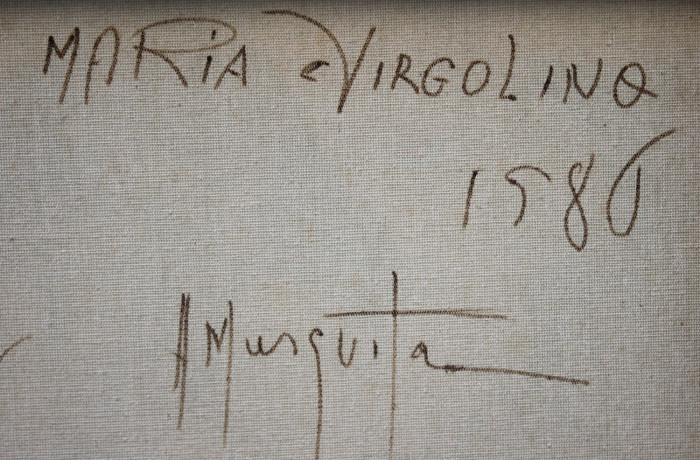 MARIA VIRGOLINO
1986
A Musquita